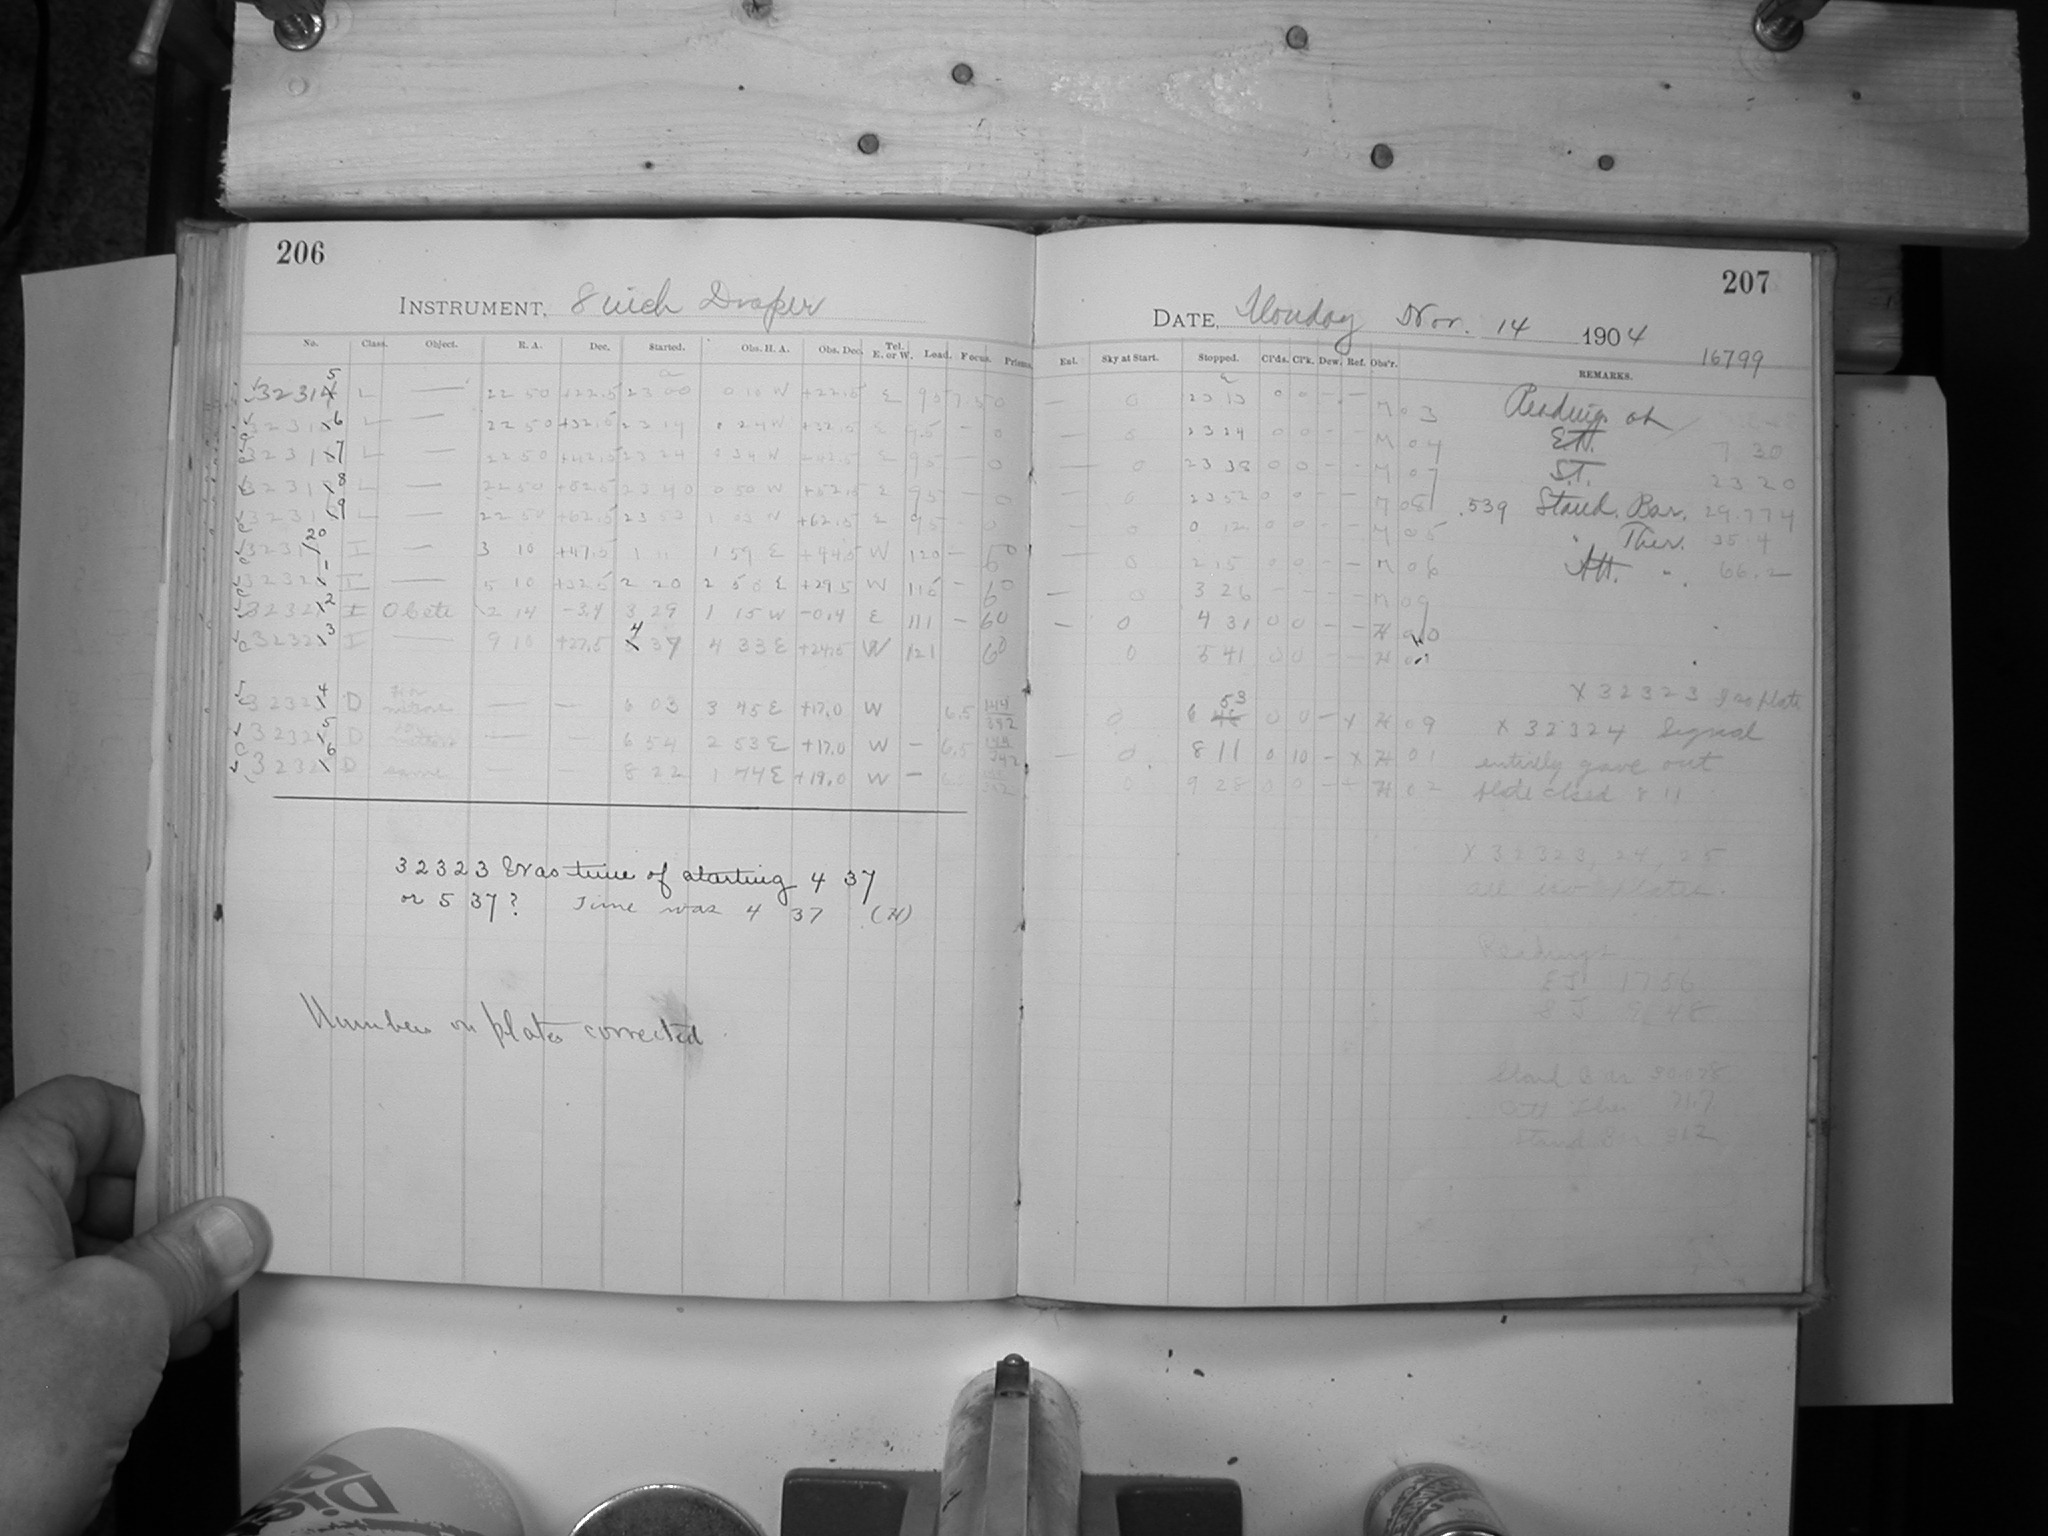 206
INSTRUMENT, 8 inch Draper
No. Class. Object. R. A. Dec. Started. Obs. H. A. Obs. Dec. Tel. E. or W. Load. Focus. Prisms.
32315 L — 22 50 +22.5 23 00 0 10 W +22.5 E 95 7.5 0
32316 L — 22 50 +32.5 23 14 0 24 W +32.5 E 95 — 0
32317 L — 22 50 +42.5 23 24 0 34 W +42.5 E 95 — 0
32318 L — 22 50 +52.5 23 40 0 50 W +52.5 E 95 — 0
32319 L — 22 50 +62.5 23 53 1 03 W +62.5 E 95 0
32320 I — 3 10 +47.5 1 11 1 59 E +44.5 W 120 — 60
32321 I — 5 10 +32.5 2 20 2 50 E +29.5 W 116 — 60
32322 I O Ceti 2 14 -3.4 3 29 1 15 W -0.4 E 111 — 60
32323 I 9 10 +27.5 4 37 4 33 E +24.5 W 121 60
32324 D — — 6 03 3 45 E +17.0 W 6.5
32325 D — — 6 54 2 53 E +17.0 W — 6.5
32326 D same — — 8 22 1 44 E +19.0 W —
32323 Was time of starting 4 37
or 5 37? Time was 4 37 (H)
Numbers on plates corrected
207
DATE, Monday Nov. 14 1904
16799
Ent. Sky at Start. Stopped. Cl'ds. Cl'k. Dew. Ref. Obs'r. REMARKS.
— 0 23 13 0 0 - - M 03 Readings at
— 0 23 24 0 0 - - M 04 E.T. 7 30
— 0 23 38 0 0 - - M 07 S.T. 23 20
0 23 52 0 0 - - M 08 .539 Stand. Bar. 29.774
— 0 0 12 0 0 - - M 05 " Ther. 35.4
— 0 2 15 0 0 - - M 06 Att. " 66.2
— 0 3 26 - - - - M 09
— 0 4 31 0 0 - - H
0 5 41 0 0 - - H
X 32323 Iso plate
0 6 53 0 0 - X H 09 X 32324 Signal
— 0 8 11 0 10 - X H 01 entirely gave out
0 9 28 0 0 - + H 02 plate closed 8 11
X 32323, 24, 25
all iso plates.
Readings
E T 17 56
S T 9 48
Stand Bar 30.078
Att Ther 71.7